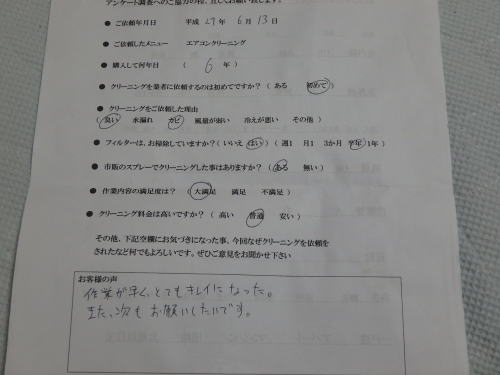 アンケート調査へのご協力の程、宜しくお願い致します。
● ご依頼年月日 平成 29 年 6 月 13 日
● ご依頼したメニュー エアコンクリーニング
● 購入して何年目 ( 6 年 )
● クリーニングを業者に依頼するのは初めてですか? ( ある 初めて )
● クリーニングをご依頼した理由
( 臭い 水漏れ カビ 風量が弱い 冷えが悪い その他 )
● フィルターは、お掃除していますか? ( いいえ はい ) ( 週1 月1 3か月 半年 1年 )
● 市販のスプレーでクリーニングした事はありますか? ( ある 無い )
● 作業内容の満足度は? ( 大満足 満足 不満足 )
● クリーニング料金は高いですか? ( 高い 普通 安い )
その他、下記空欄にお気づきになった事、今回なぜクリーニングを依頼を
されたなど何でもよろしいです。ぜひご意見をお聞かせ下さい
お客様の声
作業が早く、とてもキレイになった。
また、次も お願いしたいです。